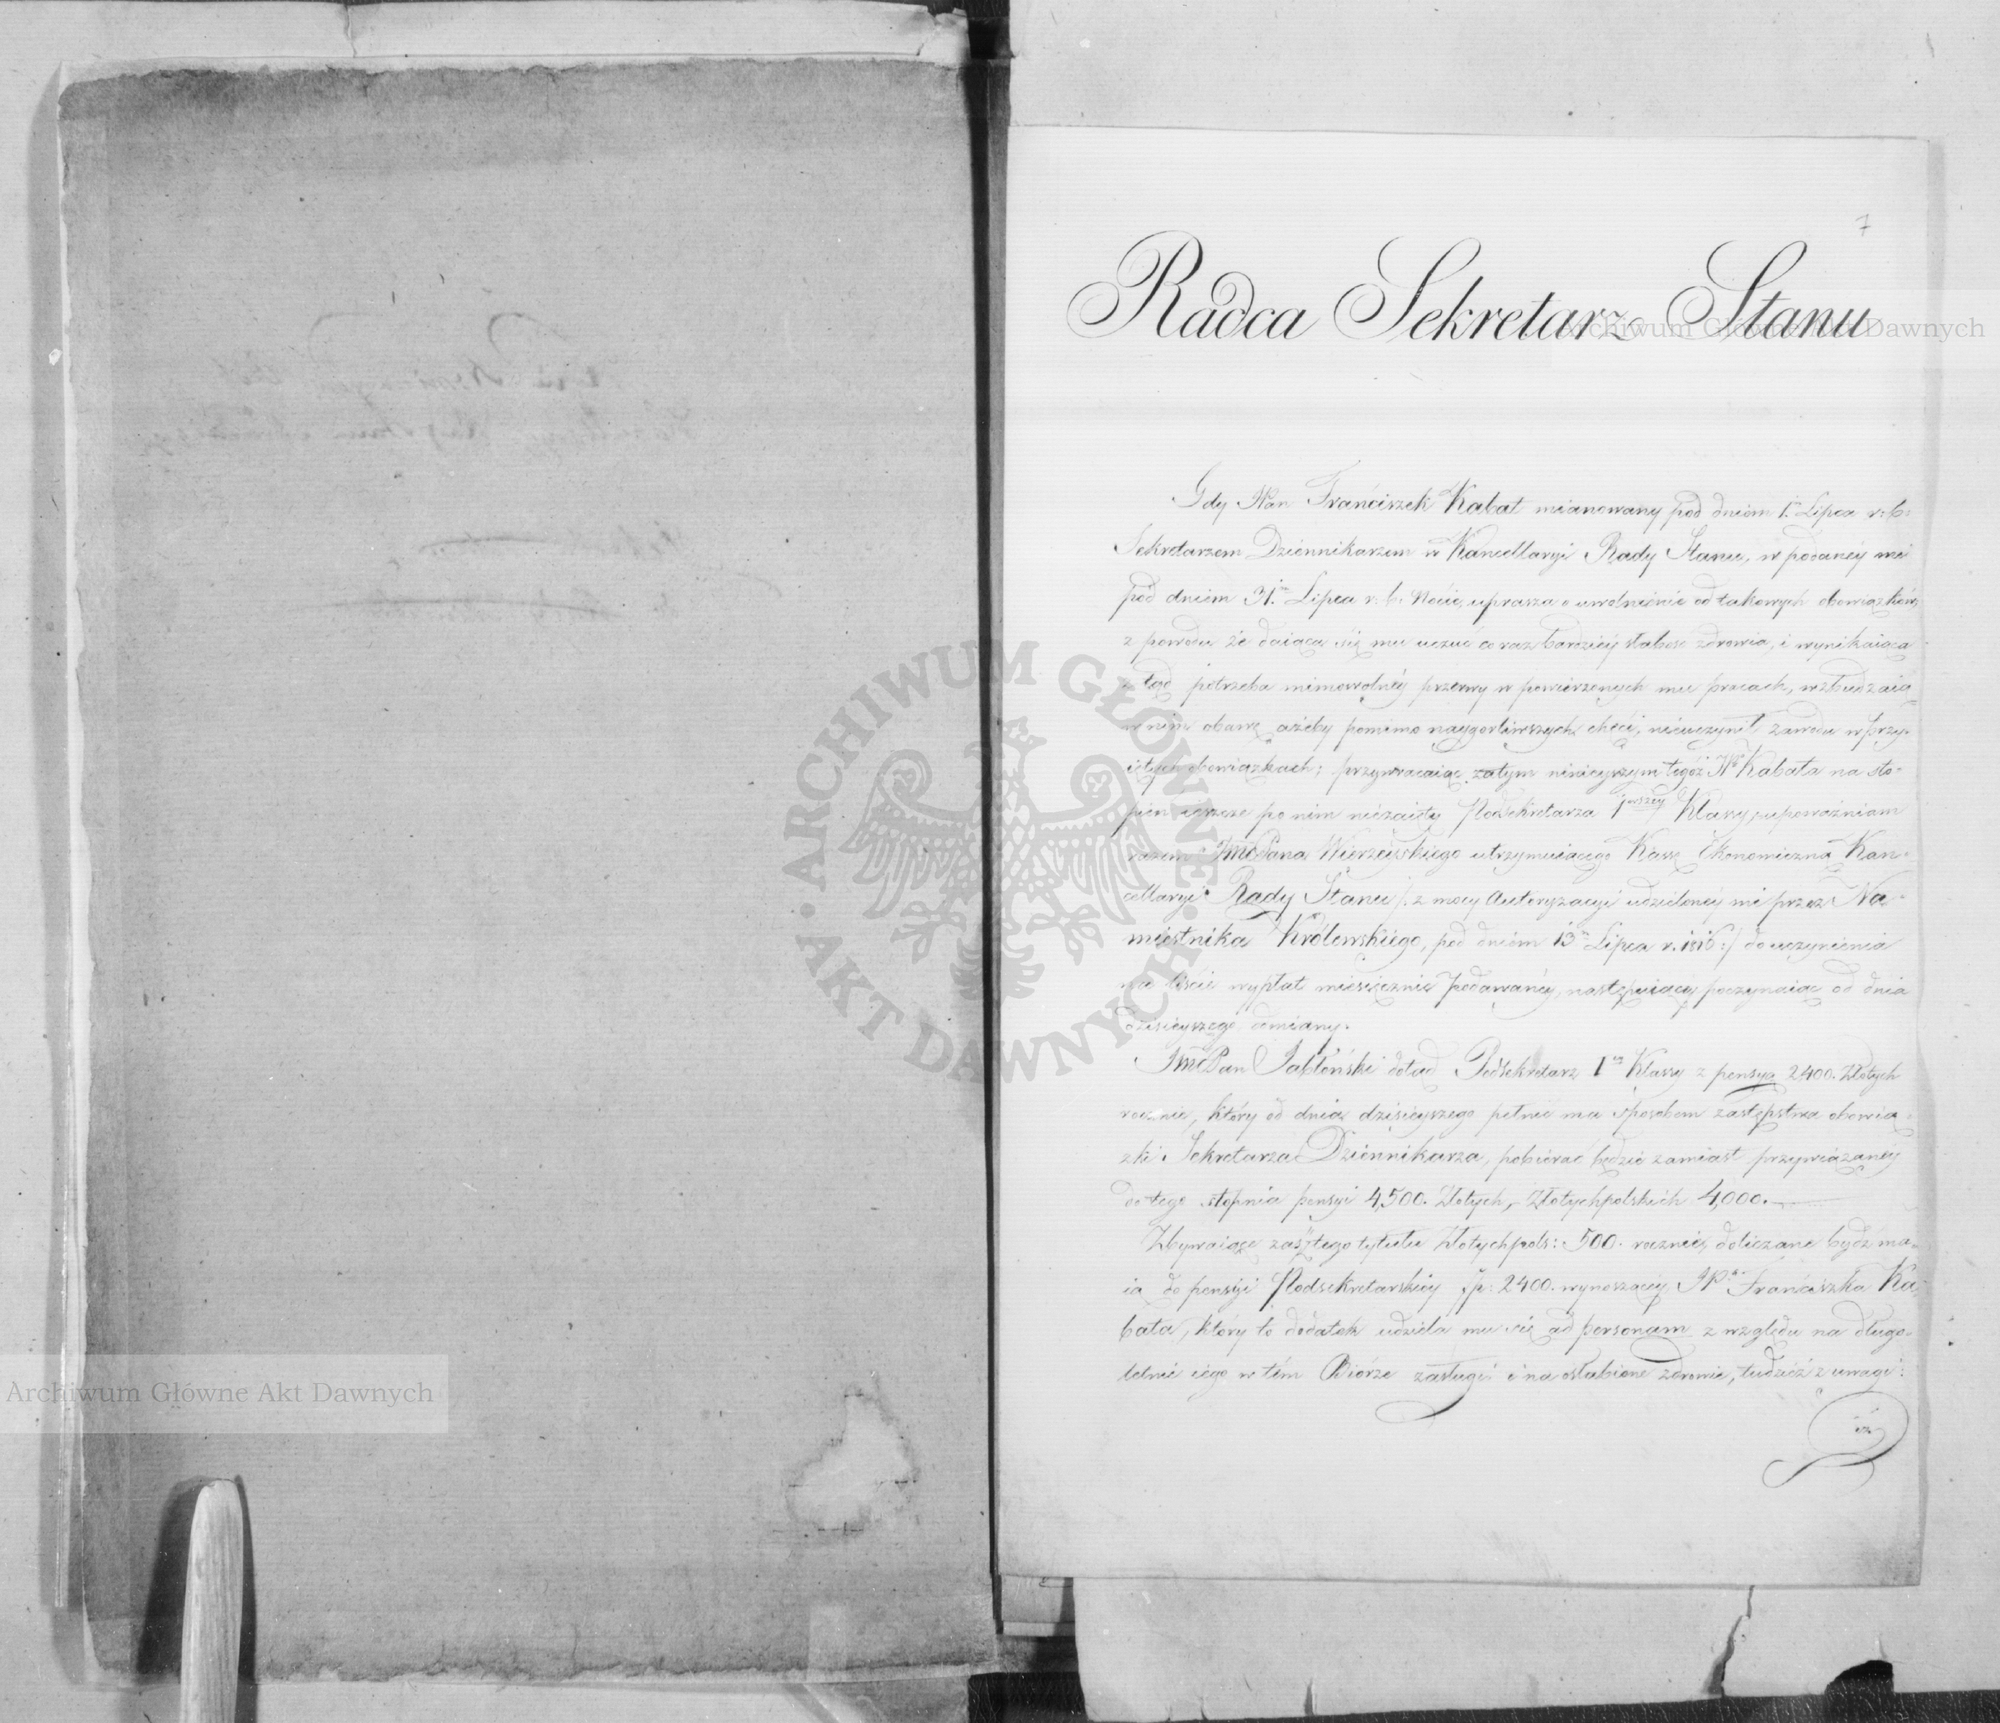 7
Radca Sekretarz Stanu
Gdy JPan Franciszek Kabat mianowany pod dniem 1. Lipca r: b:
Sekretarzem Dziennikarzem w Kancellaryi Rady Stanu, w podaney mi
pod dniem 31. Lipca r: b: Nócie, uprasza o uwolnienie od takowych obowiązków,
z powodu że daiąca się mu uczuć coraz bardziéy słabość zdrowia, i wynikaiąca
ztąd potrzeba mimowolnéy przerwy w powierzonych mu pracach, wzbudzaią
w nim obawę ażeby pomimo naygorliwszych chęci, nieuczynił zawodu w przy-
iętych obowiązkach; przywracaiąc zatym ninieyszym tegoż JPa Kabata na sto-
pień ieszcze po nim niezaięty Podsekretarza 1wszey Klassy, upoważniam
razem JmcPana Wierzeyskiego utrzymuiącego Kassę Ekonomiczną Kan-
cellaryi Rady Stanu /: z mocy Autoryzacyi udzieloney mi przez Na-
miestnika Królewskiego, pod dniem 13 Lipca r. 1816 :/ do uczynienia
na liście wypłat miesięcznie podawanéy, następuiącéy poczynaiąc od dnia
dzisieyszego odmiany.
JmcPan Jabłoński dotąd Podsekretarz 1ey Klassy z pensyą 2400. Złotych
rocznie, który od dnia dzisieyszego pełnić ma sposobem zastępstwa obowią-
zki Sekretarza Dziennikarza, pobierać będzie zamiast przywiązanéy
do tego stopnia pensyi 4,500. Złotych, Złotychpolskich 4,000.
Zbywaiące zaś z tego tytułu Złotychpols: 500. rocznie, doliczane bydź ma-
ią do pensyi Podsekretarskiey Zp: 2400. wynoszącey JPa Franciszka Ka-
bata, który to dodatek udziela mu się ad personam z względu na długo-
letnie iego w tém Biórze zasługi i na osłabione zdrowie, tudzież z uwagi:
iż
Archiwum Główne Akt Dawnych
Archiwum Główne Akt Dawnych
ARCHIWUM GŁÓWNE AKT DAWNYCH